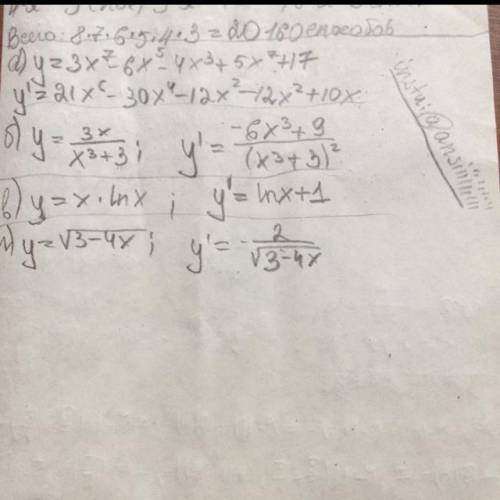 Всего: 8·7·6·5·4·3 = 20160 способов
а) y = 3x⁷ - 6x⁵ - 4x³ + 5x² + 17
y' = 21x⁶ - 30x⁴ - 12x² - 12x² + 10x
б) y = 3x/(x³+3); y' = (-6x³+9)/(x³+3)²
в) y = x · lnx ; y' = lnx + 1
y = √(3-4x); y' = - 2/√(3-4x)